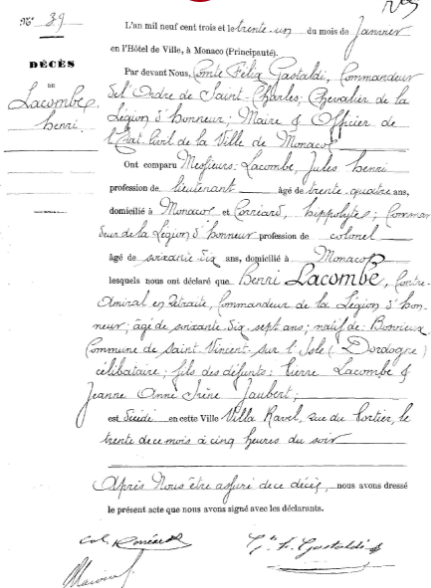 N° 39
DÉCÈS
DE
Lacombe,
henri.
L'an mil neuf cent trois et le trente-un du mois de Janvier
en l'Hôtel de Ville, à Monaco (Principauté).
Par devant Nous, Comte Félix Gastaldi, Commandeur
de l'Ordre de Saint-Charles; Chevalier de la
Légion d'honneur; Maire & Officier de
l'Etat Civil de la Ville de Monaco
Ont comparu Messieurs: Lacombe, Jules henri
profession de lieutenant âgé de trente-quatre ans,
domicilié à Monaco et Corréard, hippolyte; Comman
deur de la Légion d'honneur profession de colonel
âgé de soixante-six ans, domicilié à Monaco
lesquels nous ont déclaré que Henri Lacombe, Contre-
Amiral en retraite, Commandeur de la Légion d'hon-
neur; âgé de soixante-dix-sept ans; natif de Bonnieux
Commune de Saint Vincent sur l'Isle (Dordogne)
célibataire; fils des défunts: Pierre Lacombe &
Jeanne Anne Irène Jaubert;
est décédé en cette Ville Villa Ravel, rue du Portier, le
trente de ce mois à cinq heures du soir
Après Nous être assuré de ce décès, nous avons dressé
le présent acte que nous avons signé avec les déclarants.
Col. Corréard
Cte F. Gastaldi